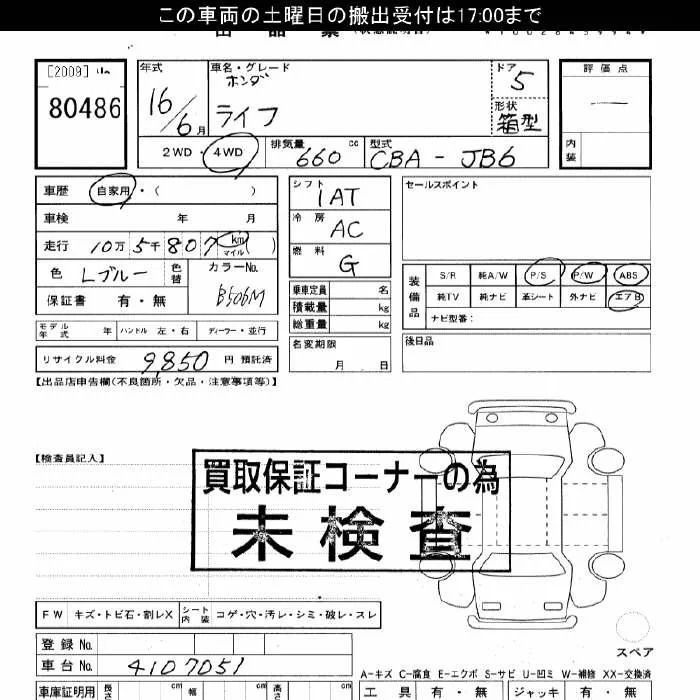 この車両の土曜日の搬出受付は17:00まで
[2009]
80486
年式
16/6月
車名・グレード
ホンダ
ライフ
ドア
5
形状
箱型
評価点
—
内装
2WD・4WD
排気量
660 cc
型式
CBA - JB6
車歴 自家用・( )
車検 年 月
走行 10万5千807 km マイル ( )
色 Lブルー 色替
カラーNo.
B506M
保証書 有・無
モデル年式 年 ハンドル 左・右 ディーラー・並行
リサイクル料金 9,850 円 預託済
シフト
IAT
冷房
AC
燃料
G
乗車定員 名
積載量 kg
総重量 kg
名変期限
月 日
セールスポイント
装備品
S/R 純A/W P/S P/W ABS
純TV 純ナビ 革シート 外ナビ エアB
ナビ型番:
後日品
【出品店申告欄(不良箇所・欠品・注意事項等)】
【検査員記入】
買取保証コーナーの為
未検査
FW キズ・トビ石・割レX シート内装 コゲ・穴・汚レ・シミ・破レ・スレ
登録 No.
車台 No. 4107051
スペア
A-キズ C-腐食 E-エクボ S-サビ U-凹ミ W-補修 XX-交換済
車庫証明用 長さ cm 幅 cm 高さ cm
工具 有・無 ジャッキ 有・無